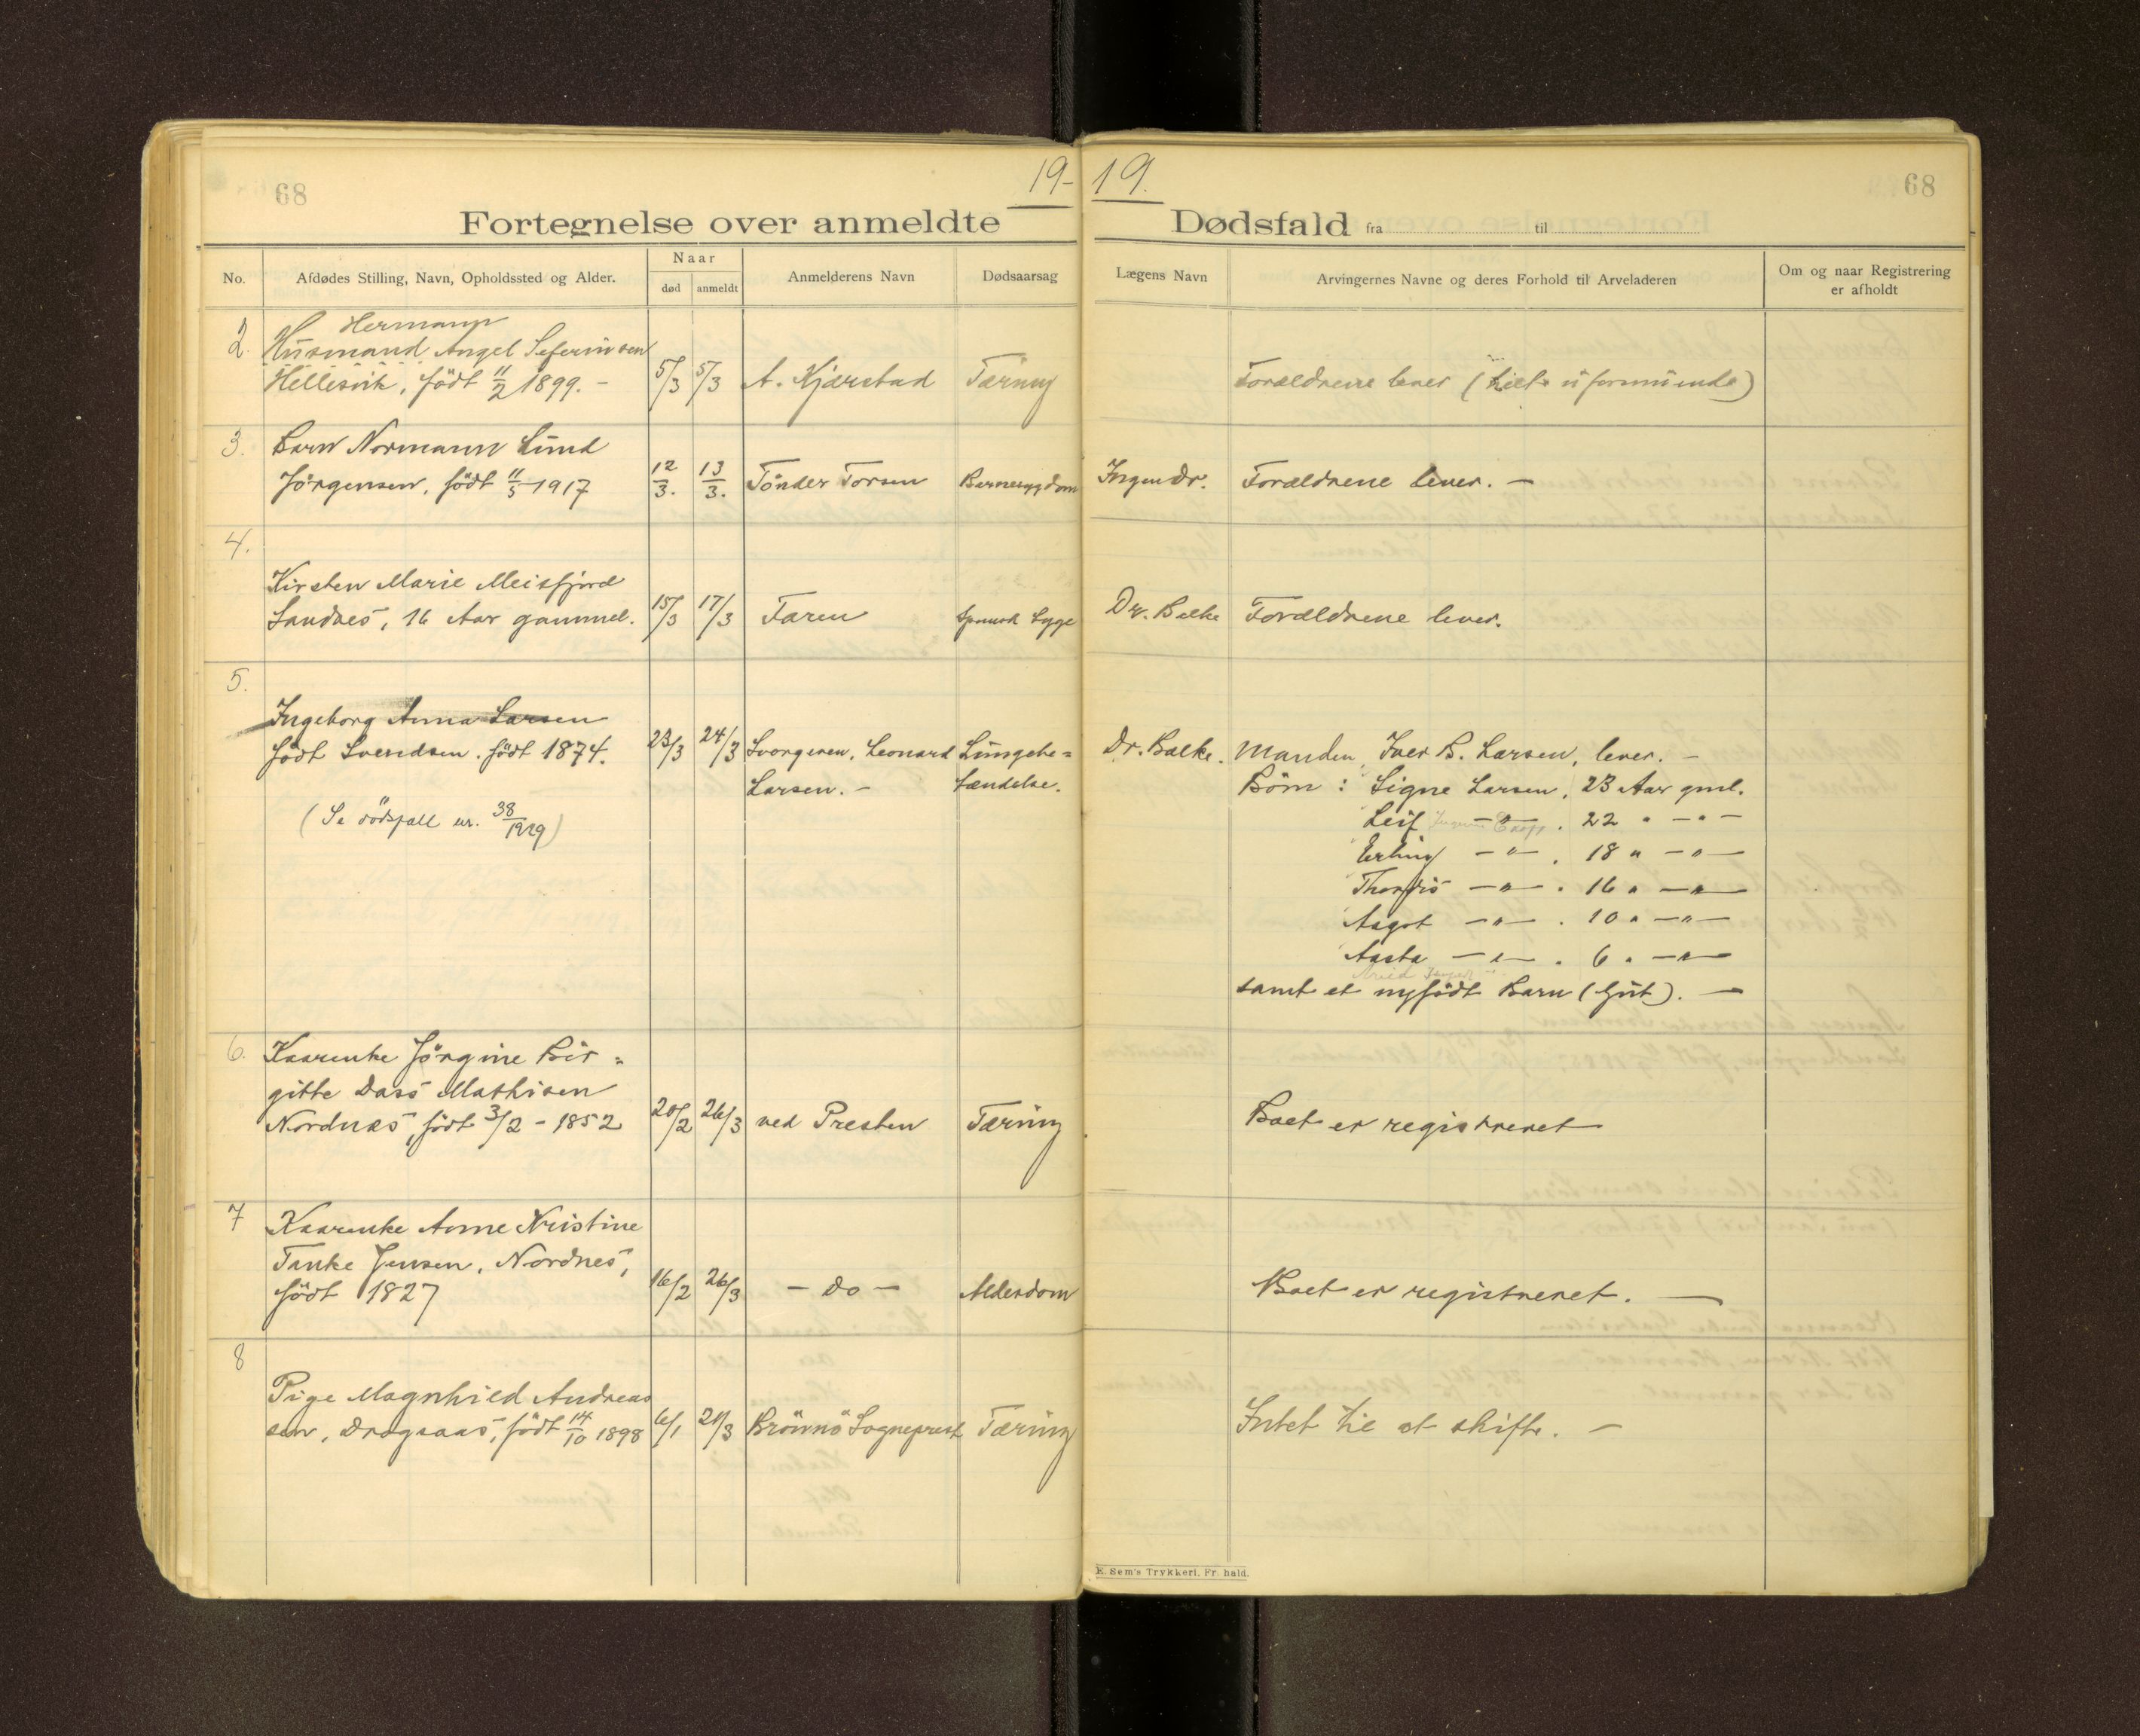 68
19-19.
68
Fortegnelse over anmeldte Dødsfald fra til
No.
Afdødes Stilling, Navn, Opholdssted og Alder.
Naar
død
anmeldt
Anmelderens Navn
Dødsaarsag
Lægens Navn
Arvingernes Navne og deres Forhold til Arveladeren
Om og naar Registrering
er afholdt
Hermann
2. Husmand Angel Seferinsen
Hellesvik, født 11/2 1899. - 5/3 5/3 A. Kjærstad Tæring Forældrene lever (helt uformuende)
3. Barn Normann Lund
Jörgensen, født 11/5 1917 12/3. 13/3. Tönder Torsen Barnesygdom Ingen Dr. Forældrene lever. -
4.
Kirsten Marie Meisfjord
Sandnes, 16 Aar gammel. 15/3 17/3 Faren Spansk Syge Dr. Balke Forældrene lever.
5.
Ingeborg Anna Larsen
født Svendsen. født 1874. 23/3 24/3 Svogeren, Leonard Lungebe= Dr. Balke. Manden, Iver B. Larsen, lever. -
Larsen. - tændelse. Börn : Signe Larsen, 23 Aar gml.
(Se dödsfall nr. 38/1929) Leif -"- . 22 " -"-
Erling -"- . 18 " -"-
Thordis -"- . 16 " -"-
Aagot -"- . 10 " -"-
Aasta -"- . 6 " -"-
samt et nyfödt Barn (Gut). -
6. Kaarenke Jörgine Bir=
gitte Dass Mathisen
Nordnes, født 3/2 - 1852 20/2 26/3 ved Presten Tæring Boet er registreret
7 Kaarenke Anne Kristine
Tanke Jensen, Nordnes,
født 1827 16/2 26/3 - do - Alderdom Boet er registreret. -
8
Pige Magnhild Andreas
sen, Dragsaas, født 14/10 1898 6/1 21/3 Brönnö Sogneprest Tæring Intet til at skifte. -
E. Sem's Trykkeri. Fr.hald.